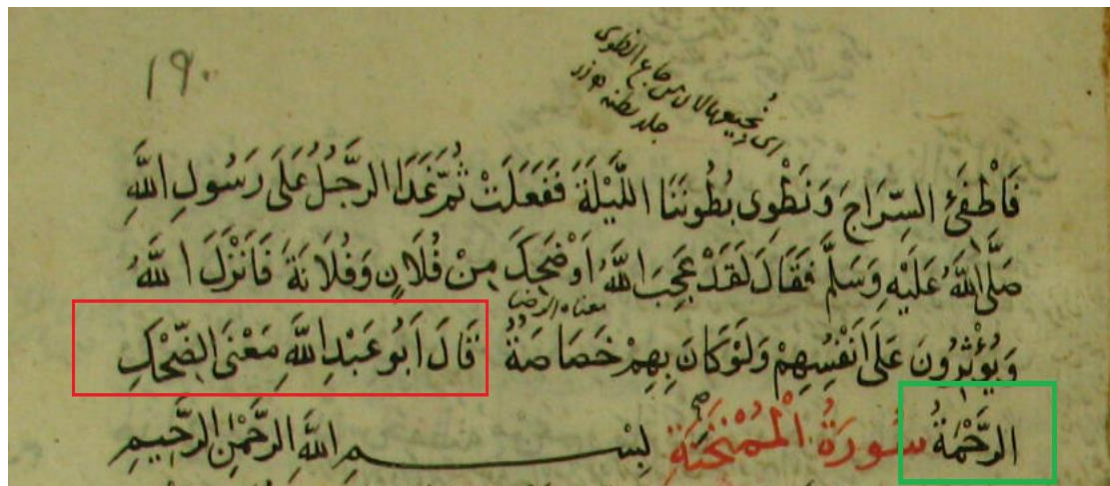 ١٩٠
اى نجيعها لان من جاع انطوى
جلد بطنه
فَاَطْفَئِ السِّرَاجَ وَنَطْوِى بُطُونَنَا اللَّيْلَةَ فَفَعَلَتْ ثُمَّ غَدَا الرَّجُلُ عَلَى رَسُولِ اللَّهِ
صَلَّى اللَّهُ عَلَيْهِ وَسَلَّمَ فَقَالَ لَقَدْ عَجِبَ اللَّهُ اَوْ ضَحِكَ مِنْ فُلَانٍ وَفُلَانَةَ فَاَنْزَلَ اللَّهُ
معناه الرضا
وَيُؤْثِرُونَ عَلَى اَنْفُسِهِمْ وَلَوْ كَانَ بِهِمْ خَصَاصَةٌ قَالَ اَبُو عَبْدِ اللَّهِ مَعْنَى الضَّحْكِ
الرَّحْمَةُ سُورَةُ الْمُمْتَحِنَةِ بِسْمِ اللَّهِ الرَّحْمٰنِ الرَّحِيمِ